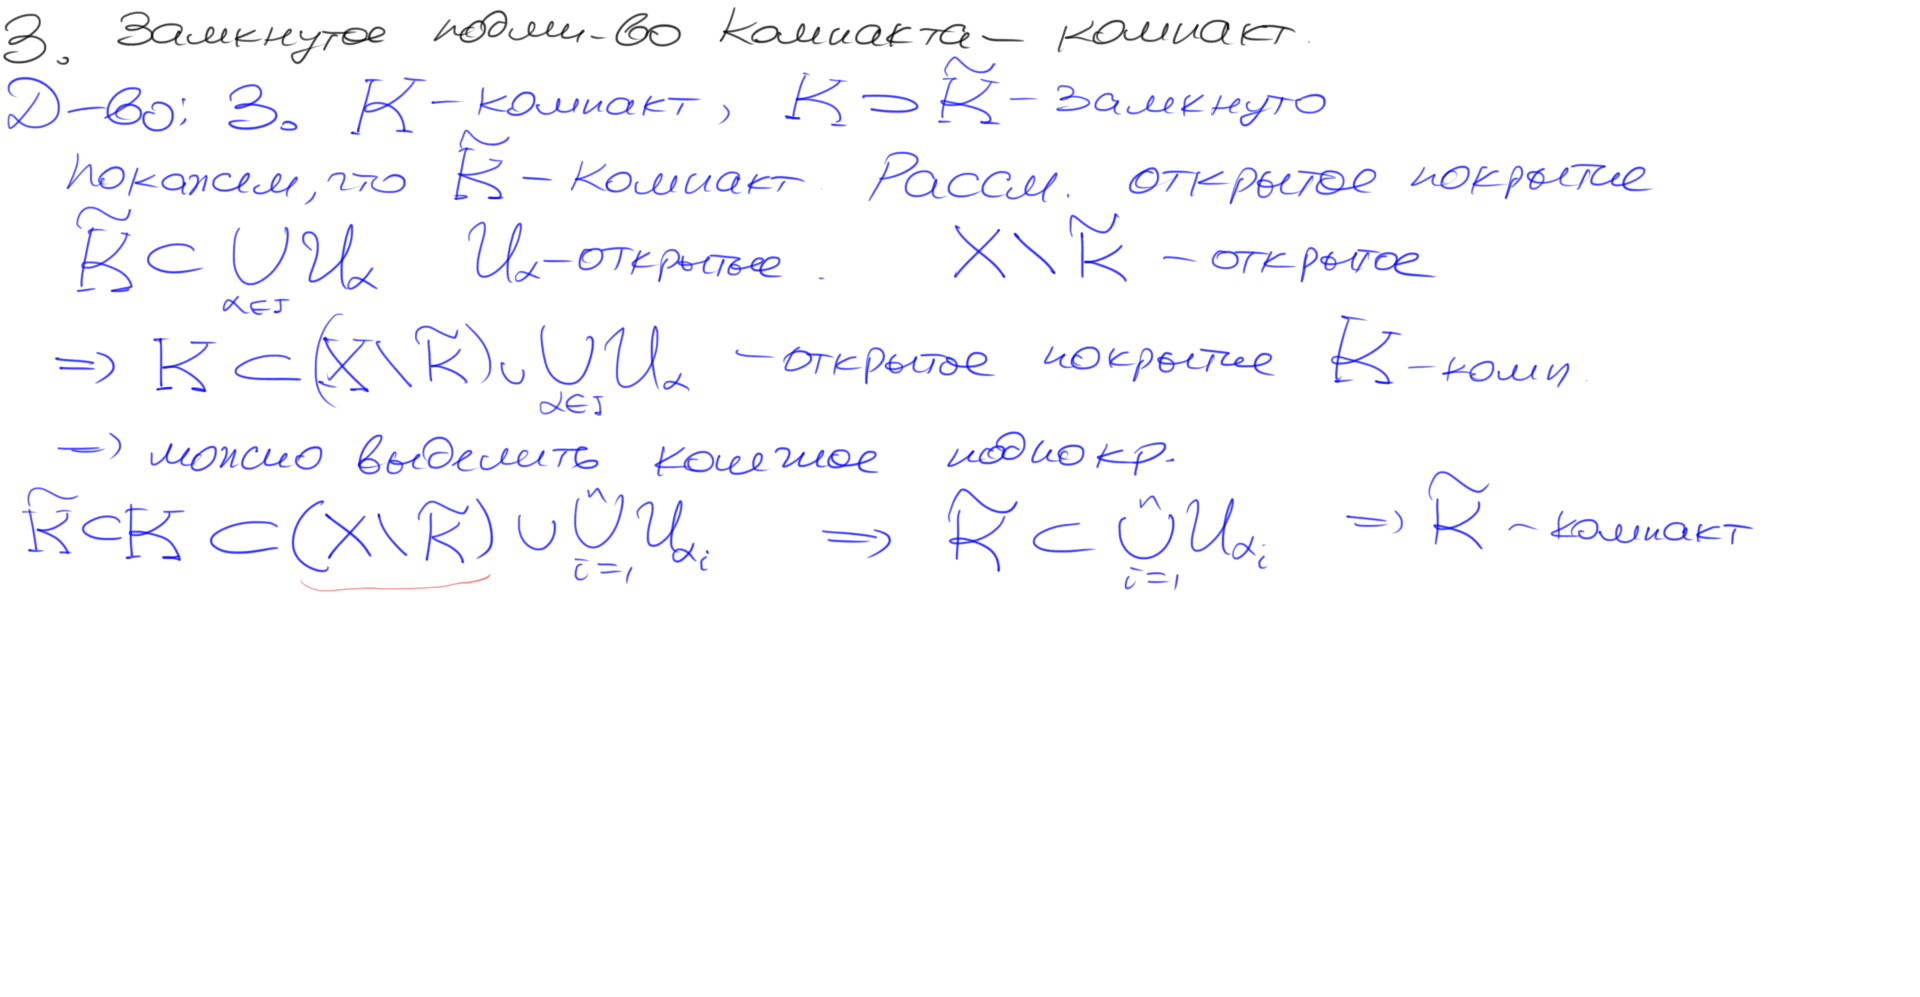 3. Замкнутое подмн-во компакта – компакт.
Д-во: 3. K – компакт, K ⊃ K̃ – замкнуто
покажем, что K̃ – компакт. Рассм. открытое покрытие
K̃ ⊂ ⋃_{α∈J} U_α U_α – открытые. X \ K̃ – открытое
⇒ K ⊂ (X \ K̃) ∪ ⋃_{α∈J} U_α – открытое покрытие K – комп.
⇒ можно выделить конечное подпокр.
K̃ ⊂ K ⊂ (X \ K̃) ∪ ⋃_{i=1}^{n} U_{α_i} ⇒ K̃ ⊂ ⋃_{i=1}^{n} U_{α_i} ⇒ K̃ – компакт